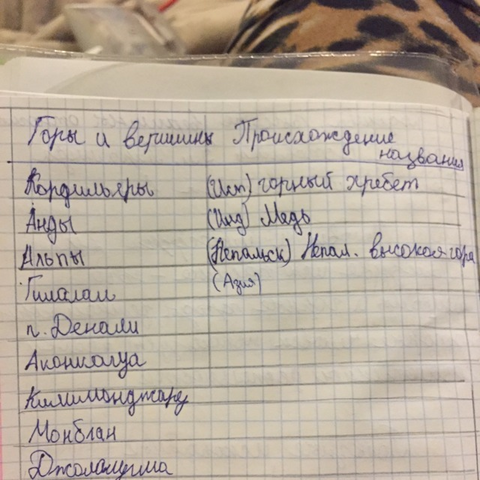 Горы и вершины Происхождение
названия
Кордильеры (Исп) горный хребет
Анды (Инд) Медь
Альпы (Непальск) Непал. высокая гора
Гималаи (Азия)
г. Денали
Аконкагуа
Килиманджару
Монблан
Джоломунгма